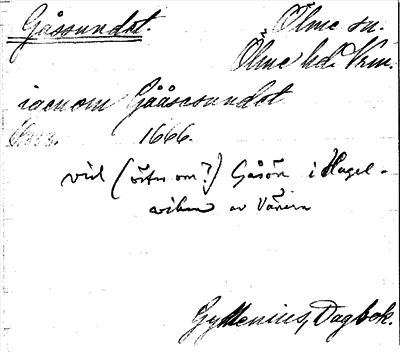 Gåssundet. Ölme sn.
Ölme hd. Vrm.
igenom Gååssundet
1666.
vid (öster om?) Gåsön i Hagel-
viken av Vänern
Gyllenius, Dagbok.